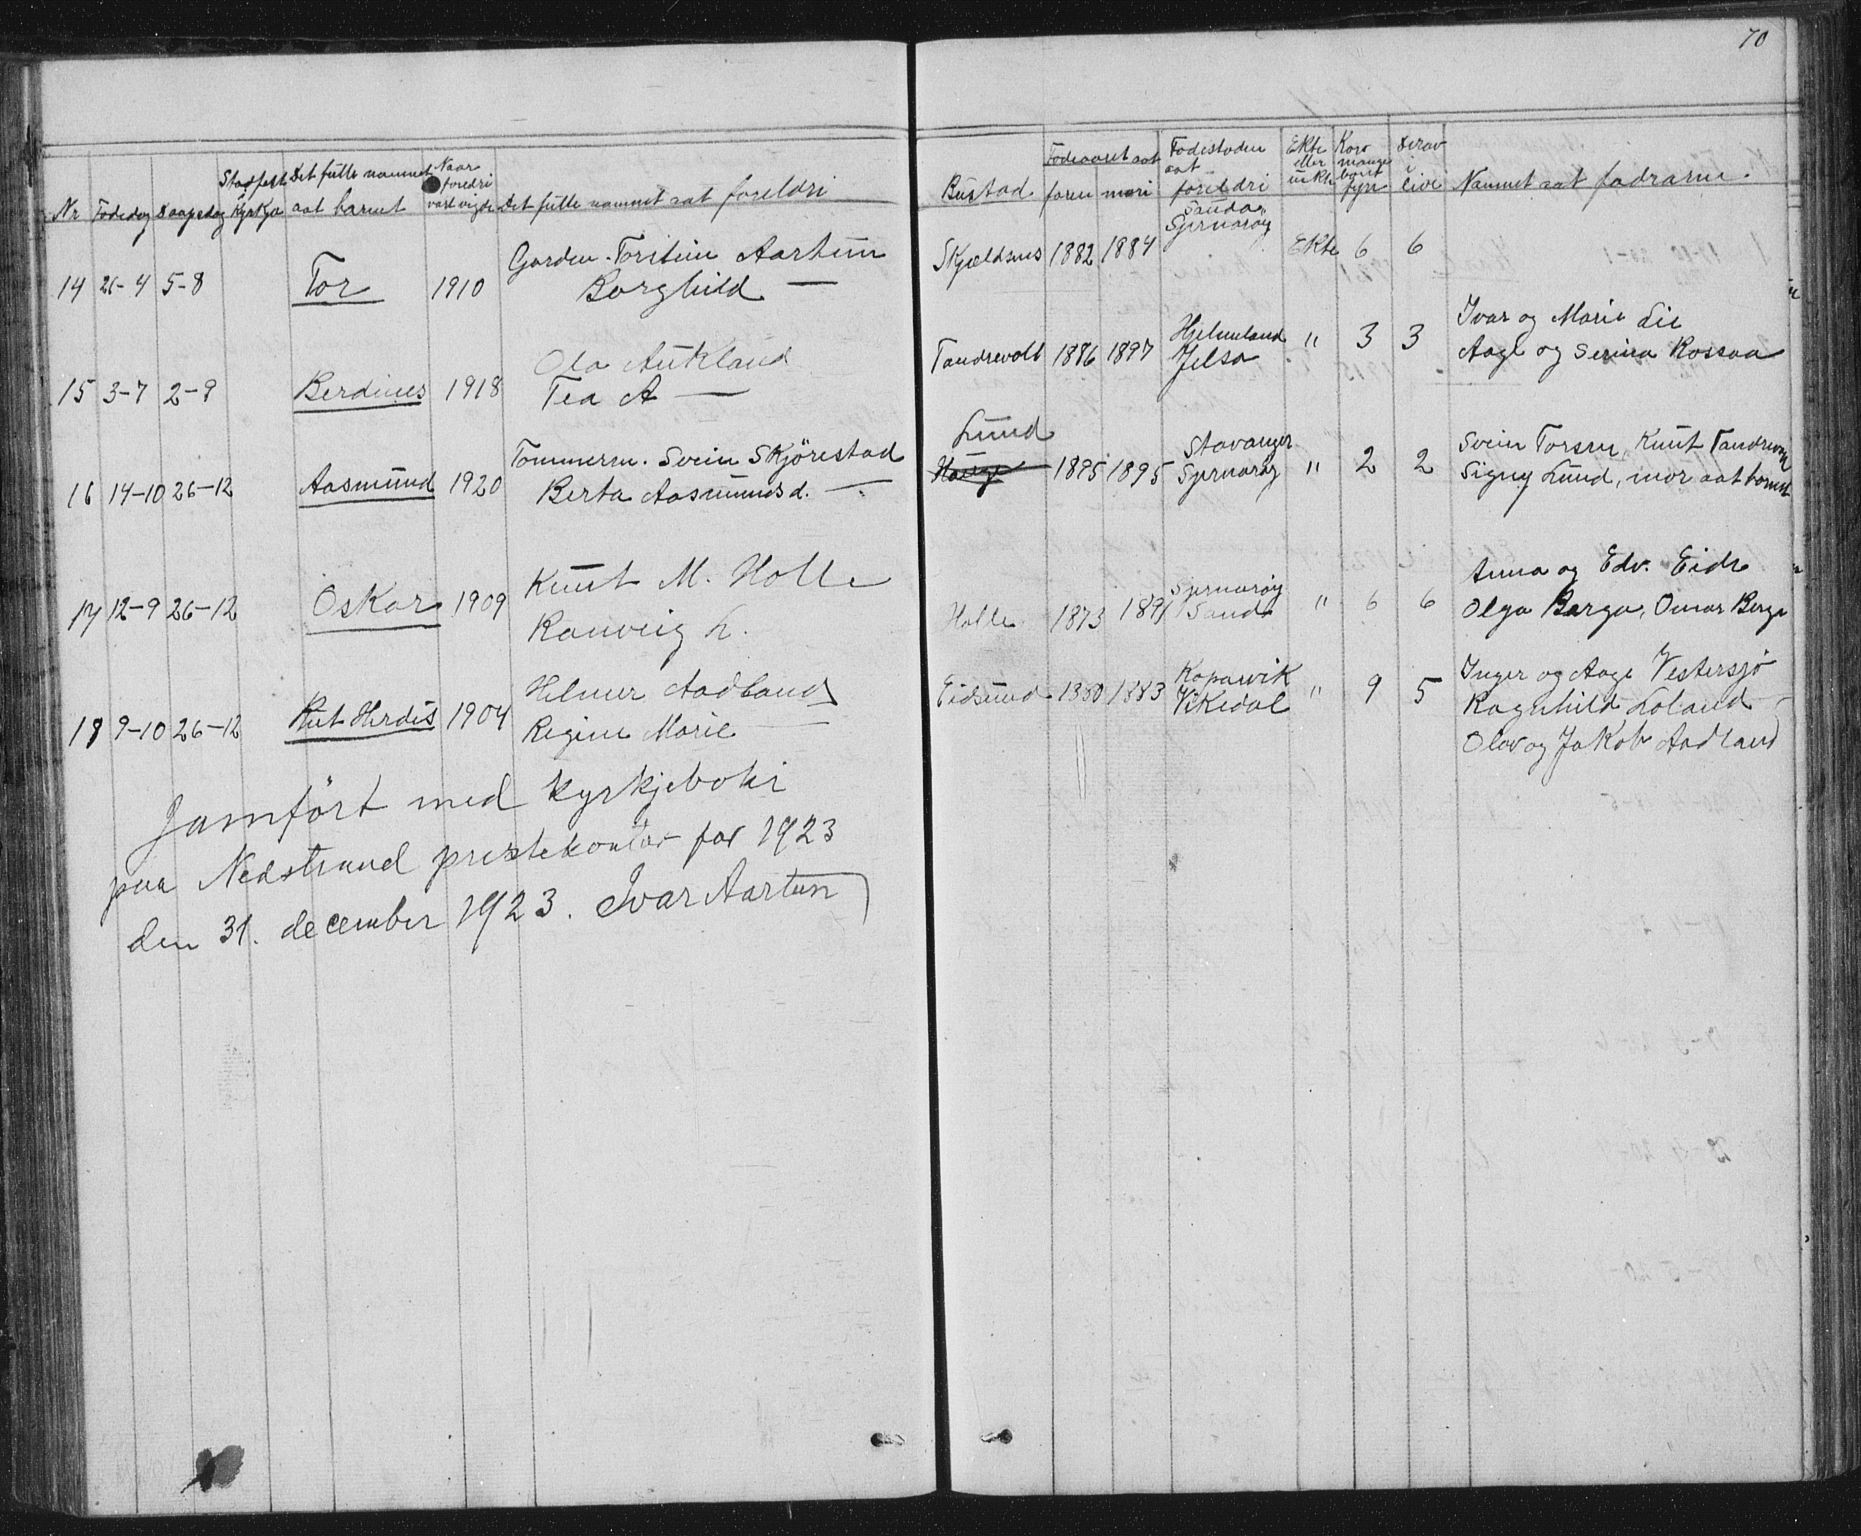 70
Nr Fødedag Daapedag Stadfest i Kyrkja Det fulle nammet aat barnet Naar foreldri vart vigde Det fulle nammet aat foreldri
Bustad Fødeaaret aat faren mori Fødestaden aat foreldri Ekte eller uekte Kor mange born fyrr Derav i live Nammet aat fadrarne.
14 26-4 5-8 Tor 1910 Garden. Torstein Aartun
Borghild —
Skjældsnes 1882 1884 Sauda Sjernarøy Ekte 6 6
15 3-7 2-9 Berdines 1918 Ola Aukland
Tea A —
Tandrevold 1886 1897 Hjelmeland Jelsa " 3 3 Ivar og Marie Lie
Aage og Serina Rossaa
16 14-10 26-12 Aasmund 1920 Tømmerm. Svein Skjørestad
Berta Aasmundsd. —
Lund
Hauge 1895 1895 Stavanger Sjernarøy " 2 2 Svein Torsen, Knut Tandrevold
Signy Lund, mor aat barnet
17 12-9 26-12 Oskar 1909 Knut M. Halle
Ranveig L.
Halle 1873 1891 Sjernarøy Sand " 6 6 Anna og Edv. Eide
Olga Berge, Omar Berge
18 9-10 26-12 Rut Herdis 1904 Helmer Aadland
Regine Marie —
Eidsund 1880 1883 Kopervik Vikedal " 9 5 Inger og Aage Vestersjø
Ragnhild Loland
Olav og Jakob Aadland
Jamført med kyrkjeboki
paa Nedstrand prestekontor for 1923
den 31. december 1923. Ivar Aartun